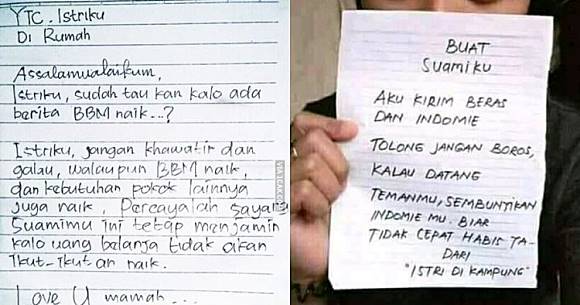 YTC. Istriku
Di Rumah
Assalamualaikum,
Istriku, sudah tau kan kalo ada
berita BBM naik...?
Istriku, jangan khawatir dan
galau, walaupun BBM naik,
dan kebutuhan pokok lainnya
juga naik, Percayalah sayang
Suamimu ini tetap menjamin
kalo uang belanja tidak akan
Ikut-Ikut-an naik.
Love U mamah...
BUAT
Suamiku
AKU KIRIM BERAS
DAN INDOMIE
TOLONG JANGAN BOROS,
KALAU DATANG
TEMANMU, SEMBUNYIKAN
INDOMIE MU. BIAR
TIDAK CEPAT HABIS TA-
DARI
"ISTRI DI KAMPUNG"